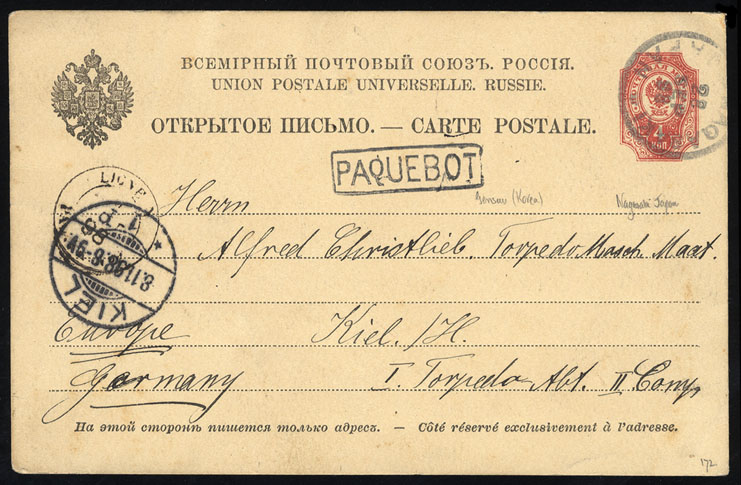 ВСЕМІРНЫЙ ПОЧТОВЫЙ СОЮЗЪ. РОССІЯ.
UNION POSTALE UNIVERSELLE. RUSSIE.
ОТКРЫТОЕ ПИСЬМО. — CARTE POSTALE.
PAQUEBOT
Herrn
Gensan (Korea)
Nagasaki Japan
Alfred Christlieb. Torpedo Masch. Maat.
LIGNE
KIEL
Europe Kiel. /H.
Germany I. Torpedo Abt. II Comp
На этой сторонѣ пишется только адресъ. — Côté réservé exclusivement à l'adresse.
172